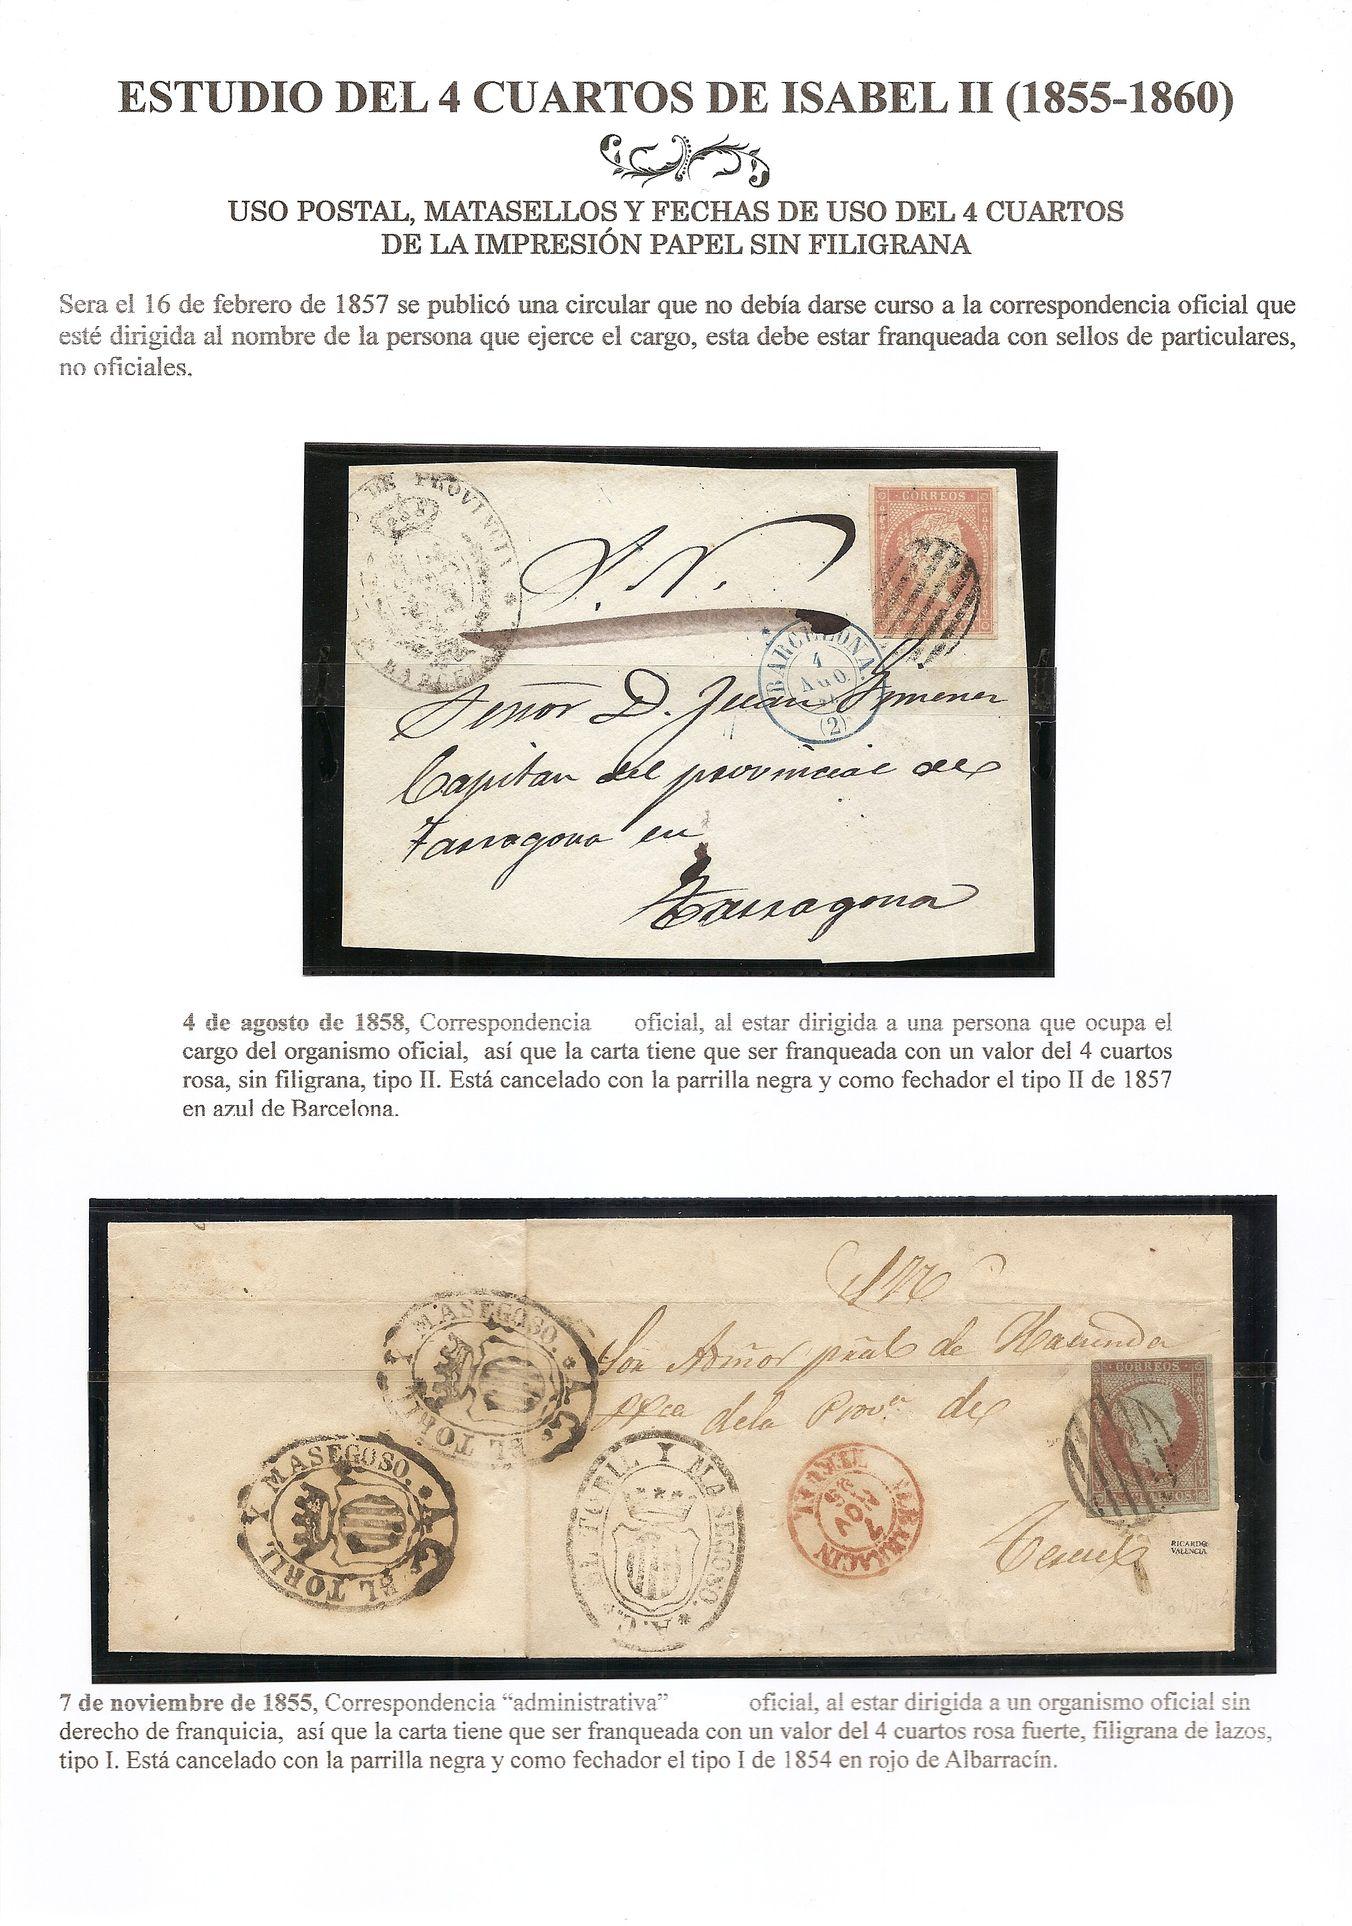 ESTUDIO DEL 4 CUARTOS DE ISABEL II (1855-1860)
USO POSTAL, MATASELLOS Y FECHAS DE USO DEL 4 CUARTOS
DE LA IMPRESIÓN PAPEL SIN FILIGRANA
Sera el 16 de febrero de 1857 se publicó una circular que no debía darse curso a la correspondencia oficial que
esté dirigida al nombre de la persona que ejerce el cargo, esta debe estar franqueada con sellos de particulares,
no oficiales.
DE PROVINCIA
BARCEL
CORREOS
S. N.
BARCELONA.
4
AGO.
(2)
Señor D. Juan Jimenez
Capitan del provincial de
Tarragona en
Tarragona
4 de agosto de 1858, Correspondencia oficial, al estar dirigida a una persona que ocupa el
cargo del organismo oficial, así que la carta tiene que ser franqueada con un valor del 4 cuartos
rosa, sin filigrana, tipo II. Está cancelado con la parrilla negra y como fechador el tipo II de 1857
en azul de Barcelona.
S N
Sor Admor pral de Hacienda
ppca de la Prova de
Teruel
CORREOS
A. C. EL TORIL Y MASEGOSO.
A. C. EL TORIL Y MASEGOSO.
A. C. EL TORIL Y MASEGOSO.
ALBARRACIN
7
NOV
TERUEL
RICARDO
VALENCIA
7 de noviembre de 1855, Correspondencia “administrativa” oficial, al estar dirigida a un organismo oficial sin
derecho de franquicia, así que la carta tiene que ser franqueada con un valor del 4 cuartos rosa fuerte, filigrana de lazos,
tipo I. Está cancelado con la parrilla negra y como fechador el tipo I de 1854 en rojo de Albarracín.